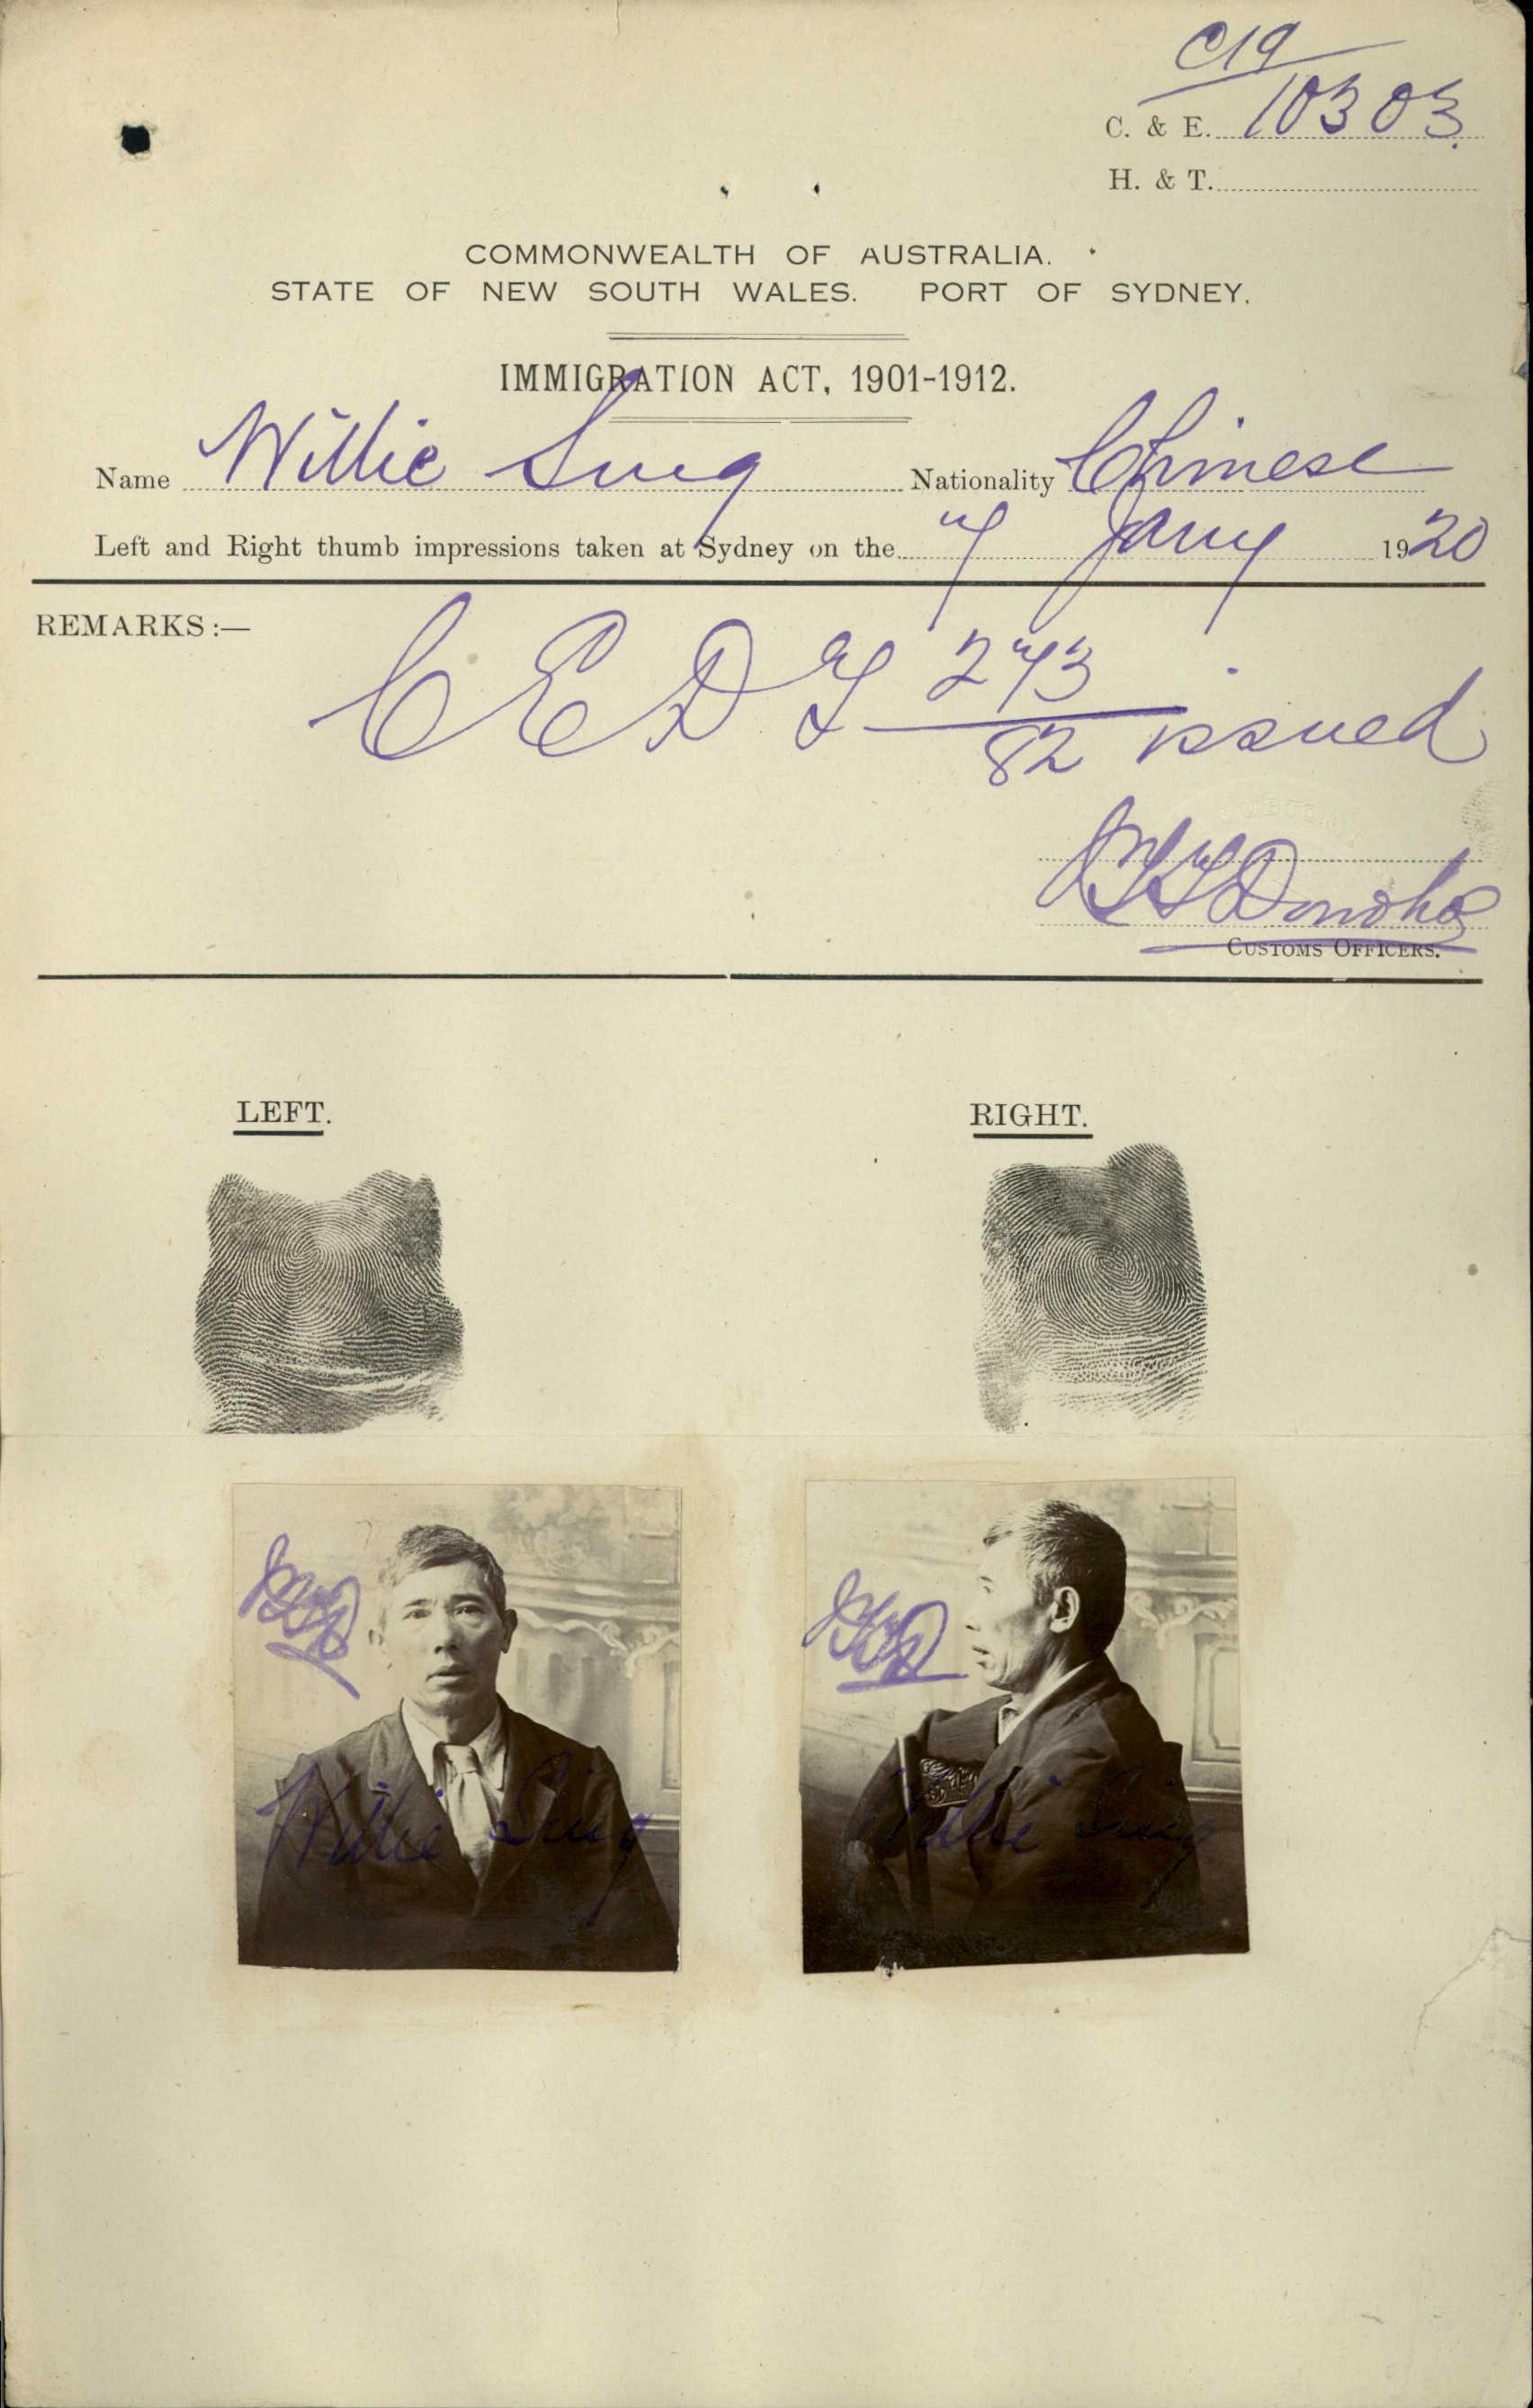 C19
C. & E. 10303.
H. & T.
COMMONWEALTH OF AUSTRALIA.
STATE OF NEW SOUTH WALES. PORT OF SYDNEY.
IMMIGRATION ACT, 1901-1912.
Name Willie Sing Nationality Chinese
Left and Right thumb impressions taken at Sydney on the 7 Jany 1920
REMARKS :—
CEDT 273
82 issued
Donohoe
CUSTOMS OFFICERS.
LEFT. RIGHT.
Willie Sing Willie Sing